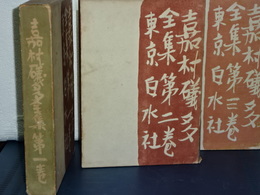 嘉村礒多全集第一卷
嘉村礒多
全集第二卷
東京白水社
嘉村礒多
全集第三卷
東京白水社